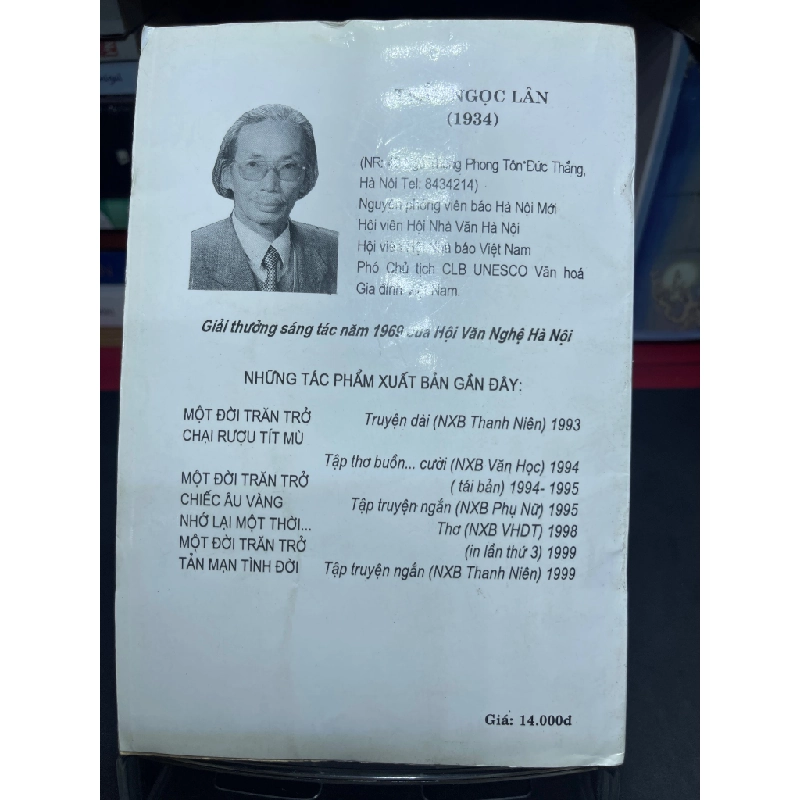 NGỌC LÂN
(1934)
(NR: Phong Tôn Đức Thắng,
Hà Nội Tel: 8434214)
Nguyên phóng viên báo Hà Nội Mới
Hội viên Hội Nhà Văn Hà Nội
Hội viên báo Việt Nam
Phó Chủ tịch CLB UNESCO Văn hoá
Gia đình Nam.
Giải thưởng sáng tác năm 1969 của Hội Văn Nghệ Hà Nội
NHỮNG TÁC PHẨM XUẤT BẢN GẦN ĐÂY:
MỘT ĐỜI TRĂN TRỞ Truyện dài (NXB Thanh Niên) 1993
CHAI RƯỢU TÍT MÙ
Tập thơ buồn... cười (NXB Văn Học) 1994
MỘT ĐỜI TRĂN TRỞ ( tái bản) 1994- 1995
CHIẾC ÂU VÀNG Tập truyện ngắn (NXB Phụ Nữ) 1995
NHỚ LẠI MỘT THỜI... Thơ (NXB VHDT) 1998
MỘT ĐỜI TRĂN TRỞ (in lần thứ 3) 1999
TẢN MẠN TÌNH ĐỜI Tập truyện ngắn (NXB Thanh Niên) 1999
Giá: 14.000đ